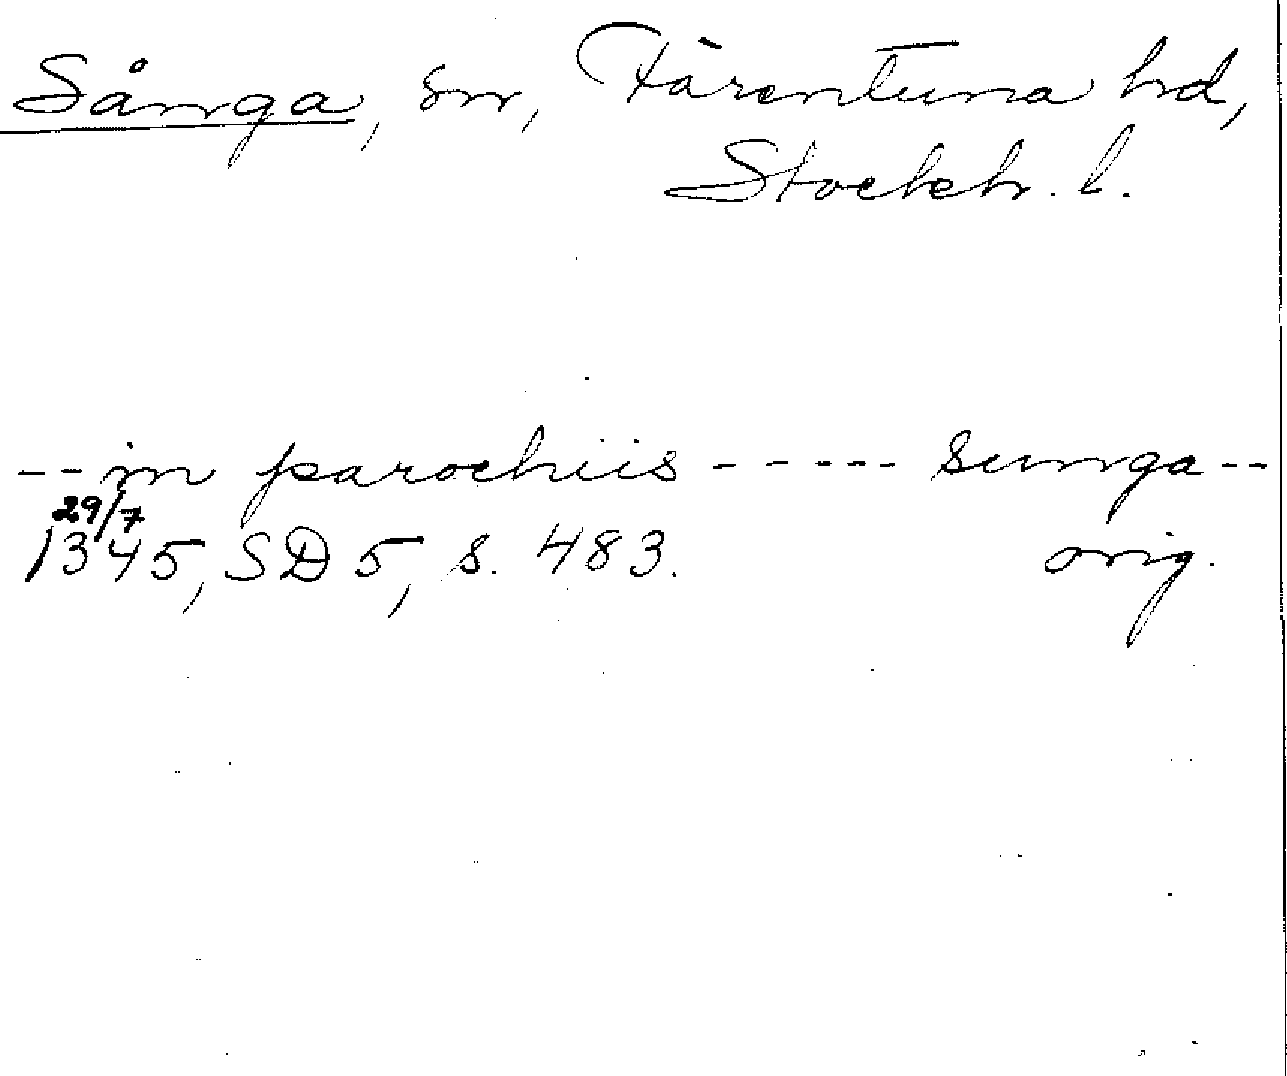 Sånga, sn, Färentuna hd,
Stockh. l.
--in parochiis ----- sunga--
29/7
1345, SD 5, s. 483. orig.